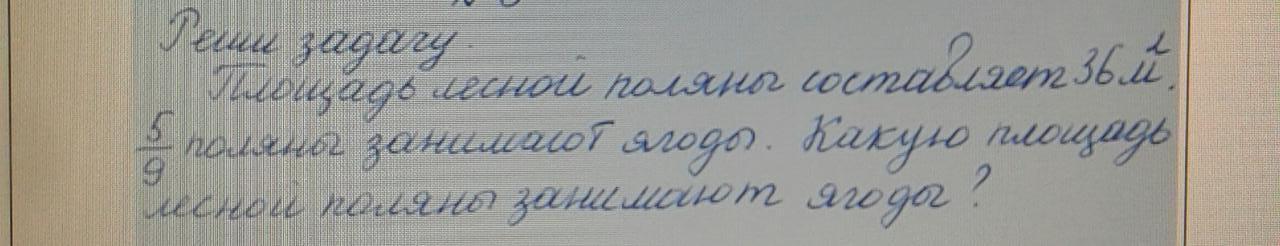 Реши задачу.
Площадь лесной поляны составляет 36 м².
5/9 поляны занимают ягоды. Какую площадь
лесной поляны занимают ягоды?